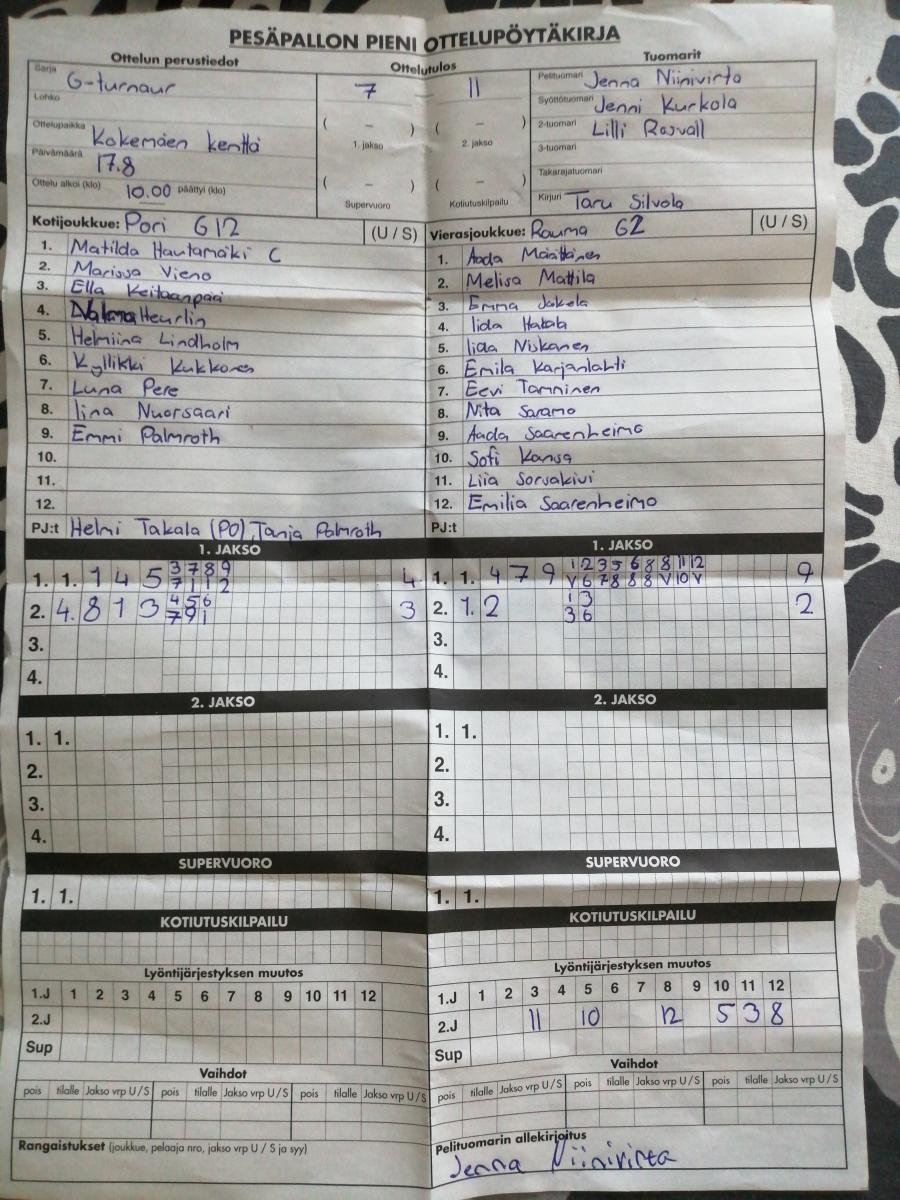 PESÄPALLON PIENI OTTELUPÖYTÄKIRJA
Ottelun perustiedot
Sarja G-turnaur
Lohko
Ottelupaikka Kokemäen kenttä
Päivämäärä 17.8
Ottelu alkoi (klo) 10.00 päättyi (klo)
Ottelutulos
7 11
( – ) ( – )
1. jakso 2. jakso
( – ) ( – )
Supervuoro Kotiutuskilpailu
Tuomarit
Pelituomari Jenna Niinivirta
Syöttötuomari Jenni Kurkola
2-tuomari Lilli Rosvall
3-tuomari
Takarajatuomari
Kirjuri Taru Silvola
Kotijoukkue: Pori G12 (U / S)
1. Matilda Hautamäki C
2. Marissa Vieno
3. Ella Keitaanpää
4. Heurlin
5. Helmiina Lindholm
6. Kyllikki Kukkonen
7. Luna Pere
8. Iina Nuorsaari
9. Emmi Palmroth
10.
11.
12.
PJ:t Helmi Takala (PO), Tanja Palmroth
Vierasjoukkue: Rauma G2 (U / S)
1. Aada Määttänen
2. Melisa Mattila
3. Emma Jokela
4. Iida Hakala
5. Iida Niskanen
6. Emila Karjanlahti
7. Eevi Tamminen
8. Nita Saramo
9. Aada Saarenheimo
10. Sofi Kansa
11. Liia Sorvakivi
12. Emilia Saarenheimo
PJ:t
1. JAKSO
1. 1. 1 4 5 3 7 8 9 4
7 1 1 2
2. 4. 8 1 3 4 5 6 3
7 9 1
3.
4.
1. JAKSO
1. 1. 4 7 9 1 2 3 5 6 8 8 11 12 9
V 6 7 8 8 8 V 10 V
2. 1. 2 1 3 2
3 6
3.
4.
2. JAKSO
1. 1.
2.
3.
4.
2. JAKSO
1. 1.
2.
3.
4.
SUPERVUORO
1. 1.
SUPERVUORO
1. 1.
KOTIUTUSKILPAILU
KOTIUTUSKILPAILU
Lyöntijärjestyksen muutos
1.J 1 2 3 4 5 6 7 8 9 10 11 12
2.J
Sup
Lyöntijärjestyksen muutos
1.J 1 2 3 4 5 6 7 8 9 10 11 12
2.J 11 10 12 5 3 8
Sup
Vaihdot
pois tilalle Jakso vrp U / S pois tilalle Jakso vrp U / S pois tilalle Jakso vrp U / S
Vaihdot
pois tilalle Jakso vrp U / S pois tilalle Jakso vrp U / S pois tilalle Jakso vrp U / S
Rangaistukset (joukkue, pelaaja nro, jakso vrp U / S ja syy)
Pelituomarin allekirjoitus
Jenna Niinivirta